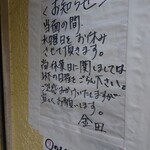 〈お知らせ〉
当面の間、
水曜日をお休み
させて頂きます。
尚、休業日に関しましては
の日程をごらん下さい。
ご迷惑おかけいたしますが
宜しくお願いします。
金田